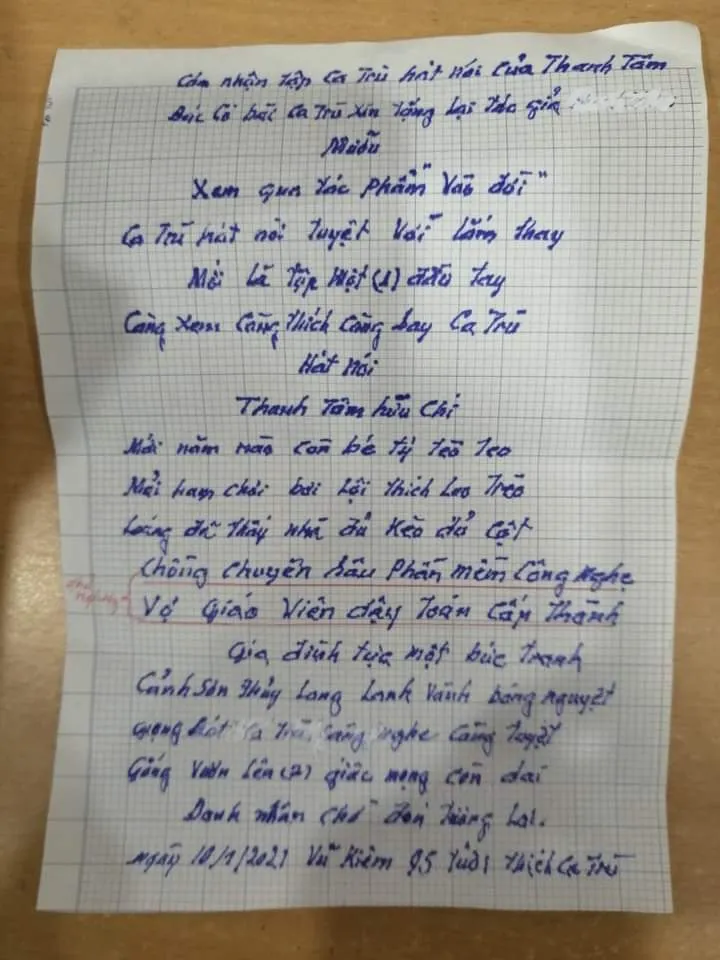 Cảm nhận tập Ca Trù hát nói của Thanh Tâm
Bác Có bài Ca Trù xin tặng lại tác giả
Mưỡu
Xem qua tác phẩm "Vào đời"
Ca Trù hát nói tuyệt vời lắm thay
Mới là tập một (1) đầu tay
Càng xem càng thích càng say Ca Trù
Hát nói
Thanh Tâm hữu chí
Mới năm nào còn bé tý tẻo teo
Mải ham chơi bơi lội thích leo trèo
Loáng đã thấy nhà đủ kèo đủ cột
Chồng chuyên sâu phần mềm công nghệ
Vợ giáo viên dậy toán cấp thành
Gia đình tựa một bức tranh
Cảnh sơn thủy long lanh vành bóng nguyệt
Giọng hát Ca Trù càng nghe càng tuyệt
Gắng vươn lên (2) giấc mộng còn dài
Danh nhân chờ đón tương lai.
Ngày 10/1/2021 Vũ Kiêm 95 tuổi thích Ca Trù